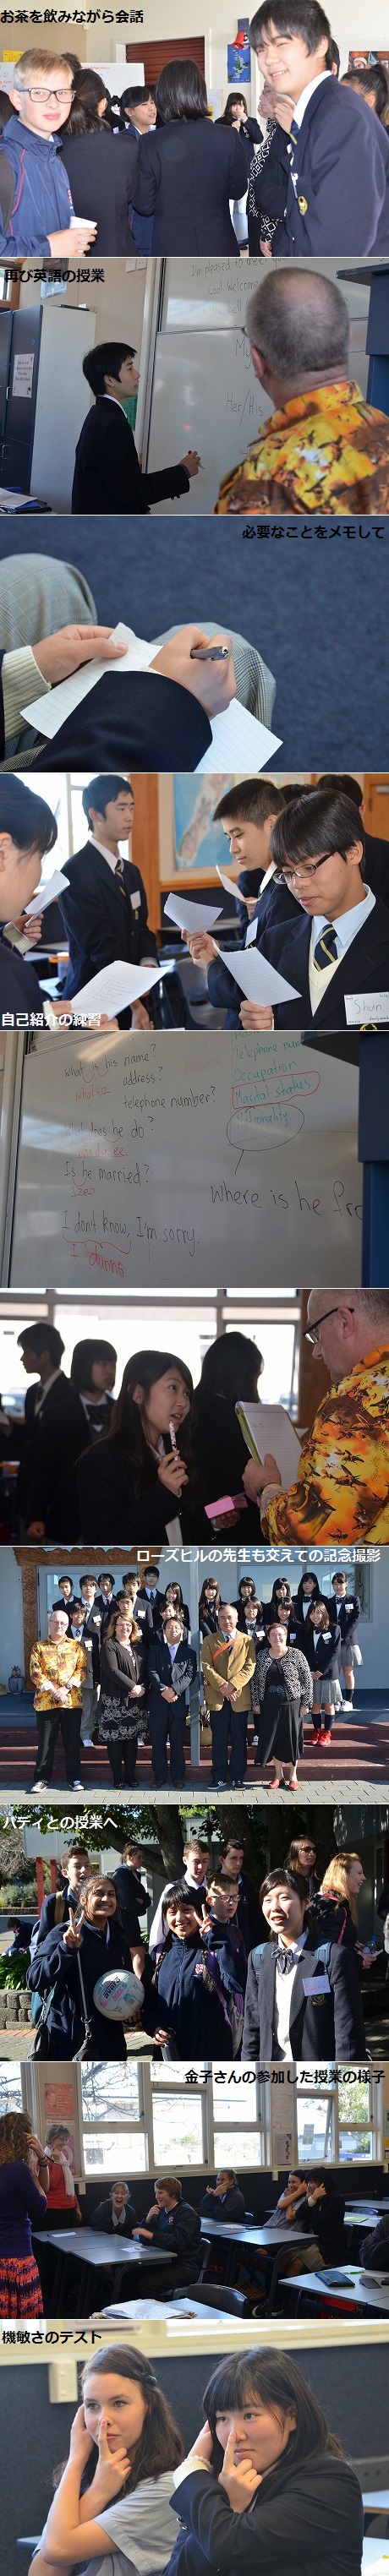 お茶を飲みながら会話
再び英語の授業
I'm pleased to meet you
Cool Welcome
My
Her/His
必要なことをメモして
自己紹介の練習
Shun
what is his name?
address?
telephone number?
Telephone num
Occupation
Marital status
Nationality
what does he do?
Is he married?
Where is he fro
I don't know, I'm sorry.
I dunno
ローズヒルの先生も交えての記念撮影
バディとの授業へ
金子さんの参加した授業の様子
機敏さのテスト